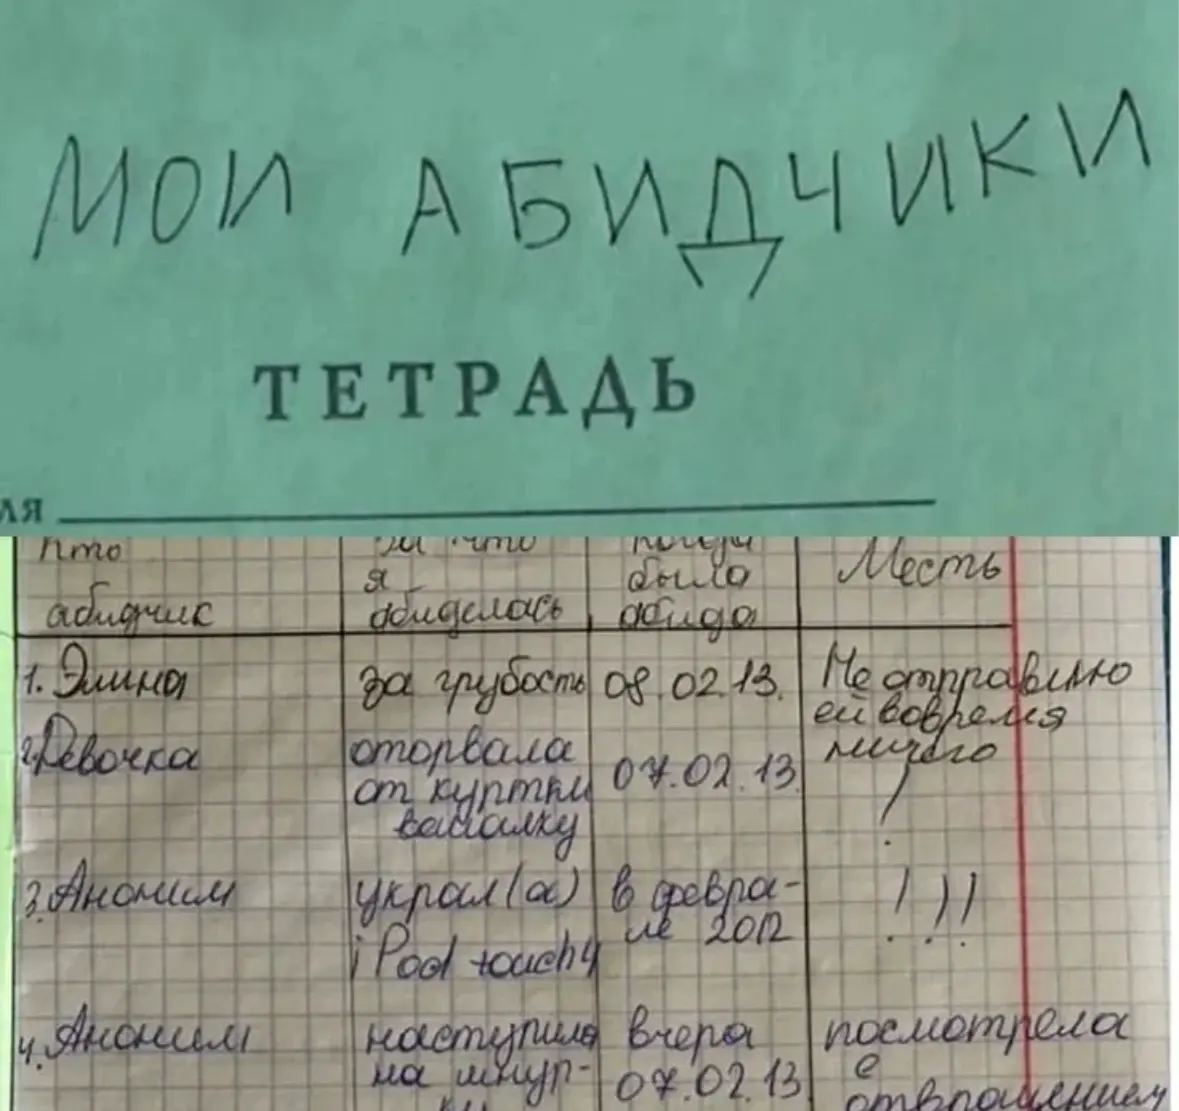 МОИ АБИДЧИКИ
ТЕТРАДЬ
ля
кто абидчик | за что я абиделась | когда было абида | Месть
1. Элина | за грубость | 08.02.13. | Не отправлю ей вовремя ничего
2. Девочка | оторвала от куртки вешалку | 07.02.13. | !
3. Аноним | украл(а) iPod touch 4 | в февра-ле 2012 | !!!
4. Аноним | наступила на шнур-ки | вчера 07.02.13 | посмотрела с отвращением